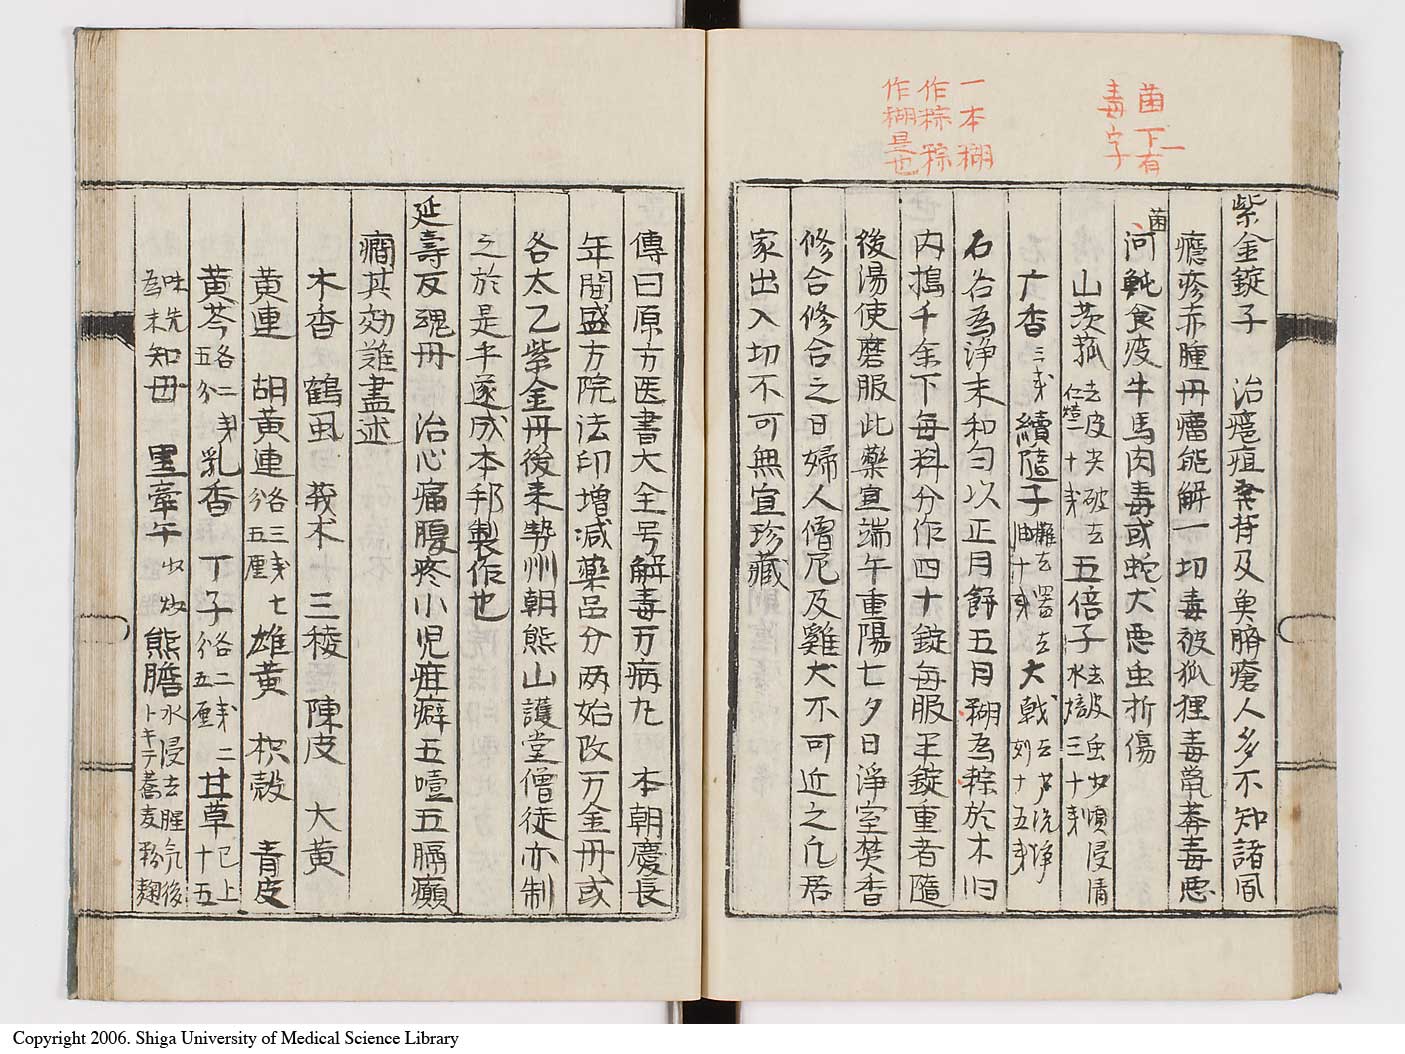 菌下有一
毒字
一本糊
作粽粽
作糊是也
紫金錠子　治癰疽發背及魚臍瘡人多不知諸風
癮疹赤腫丹瘤能解一切毒被狐狸毒鼠莽毒惡
菌
河魨食疫牛馬肉毒或蛇犬惡虫折傷
山茨菰去皮
五倍子
三十戔
广香三戔續隨子去油十戔大戟去芦洗浄十五戔
右各為浄末和匀以正月餅五月糊為粽於木臼
内搗千余下每料分作四十錠每服半錠重者隨
後湯使磨服此藥宜端午重陽七夕日淨室焚香
修合修合之日婦人僧尼及雞犬不可近之凡居
家出入切不可無宜珍藏
傳曰原方医書大全号解毒万病丸　本朝慶長
年間盛方院法印增減藥品分两始改万金丹或
各太乙紫金丹後来勢州朝熊山護堂僧徒亦制
之於是乎遂成本邦製作也
延壽反魂丹　治心痛腹疼小児疳癖五噎五膈癲
癇其効難盡述
木香　鶴虱　莪术　三稜　陳皮　大黄
黄連　胡黄連各三戔七分五厘雄黄　枳殻　青皮
黄芩各二戔五分乳香　丁子各二戔二分五厘甘草已上十五
味先為末知母　黒牽牛少炒熊膽水浸去腥氣後
卜キテ蕎麦粉麹